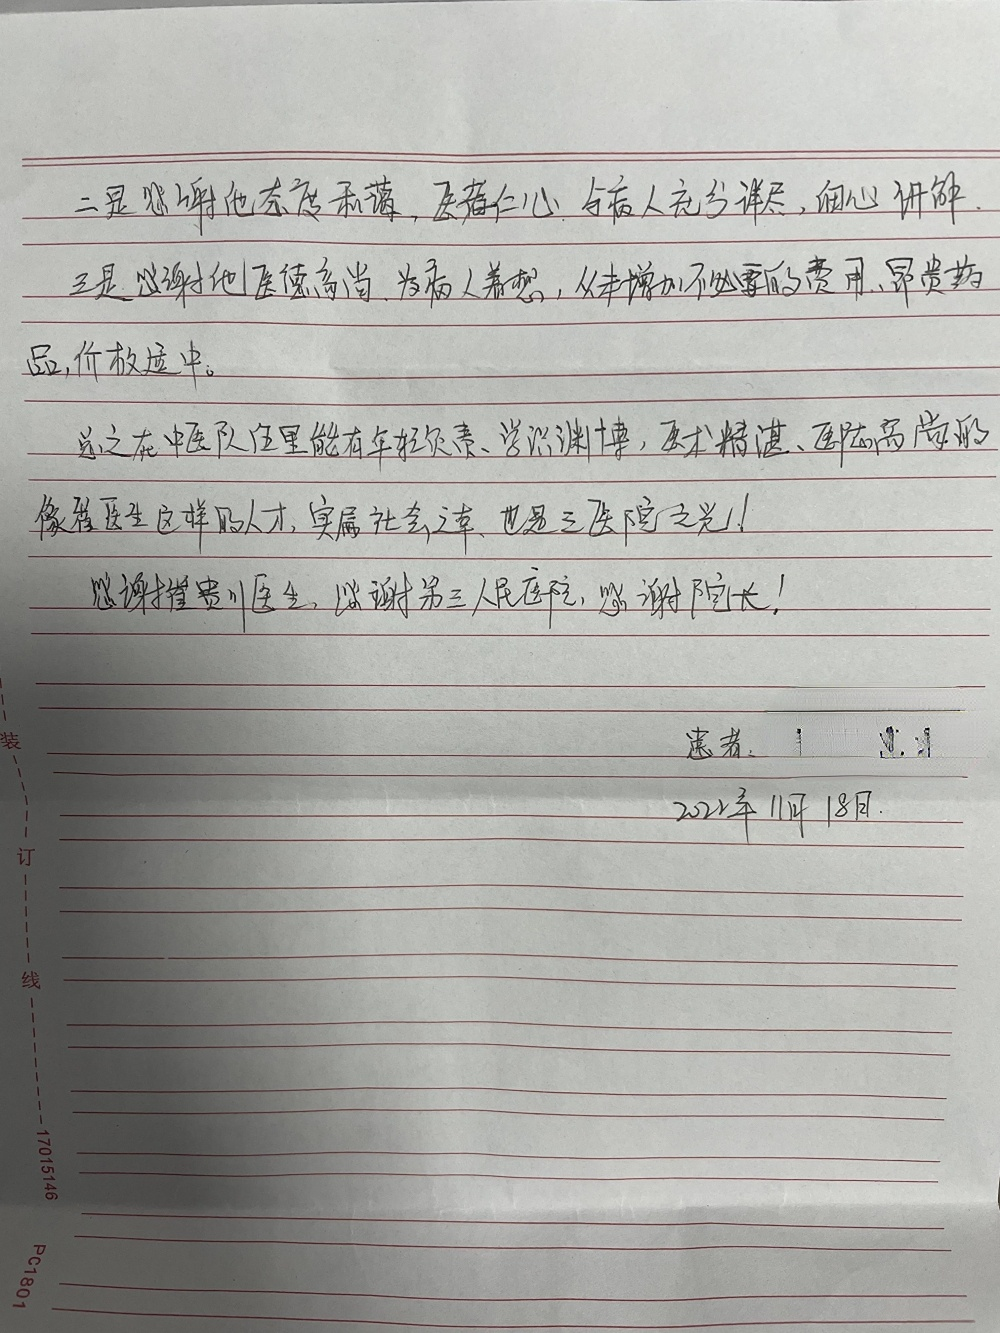 二是感谢他态度和蔼，医者仁心.与病人充分详尽，细心讲解.
三是.感谢他医德高尚.为病人着想，从未增加不必要的费用、昂贵药
品，价格适中。
总之在中医队伍里能有年轻负责、学识渊博，医术精湛、医德高尚的
像崔医生这样的人才，实属社会之幸、也是三医院之光！
感谢崔贵川医生，感谢第三人民医院，感谢院长！
患者.
2022年11月18日.
装
订
线
17015146
PC1801